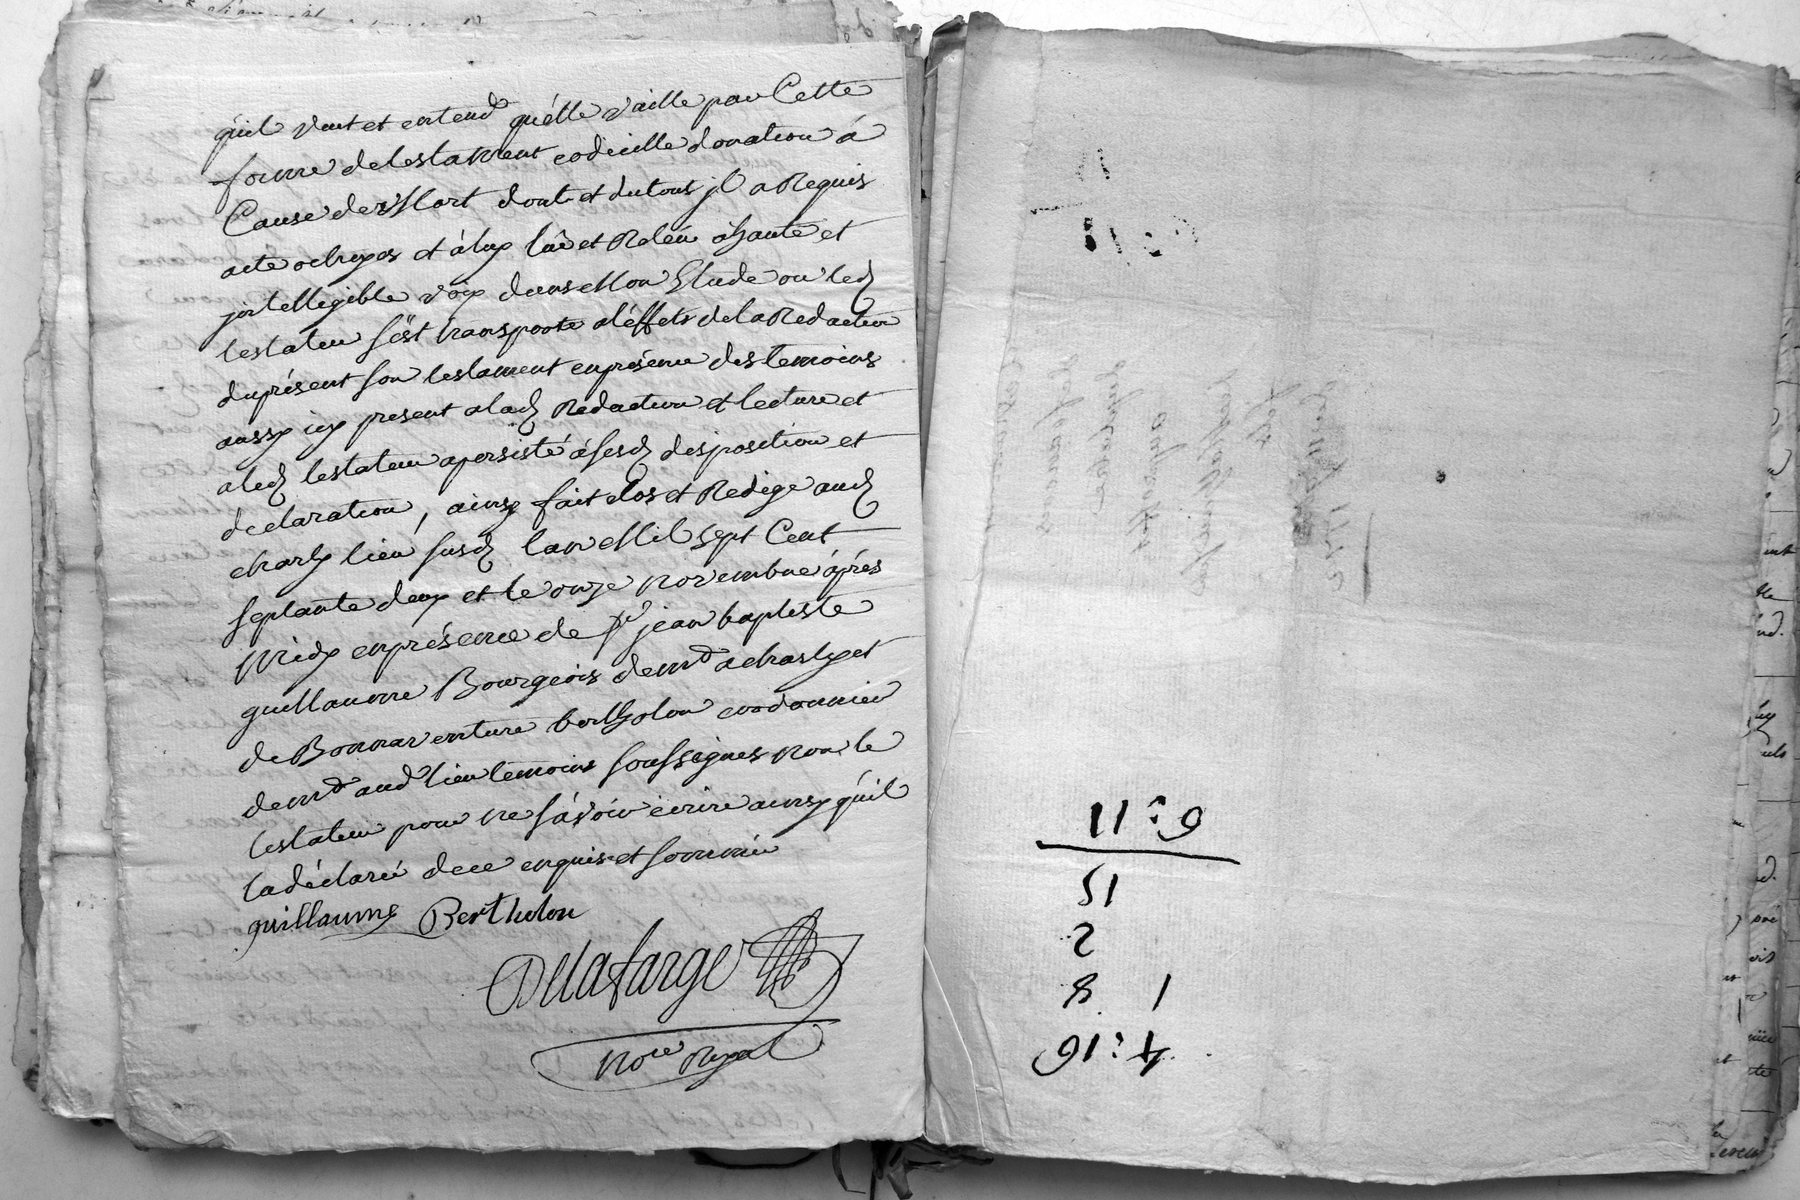 qu'il veut et entend qu'elle vaille par Cette
forme de testament codicille donation à
Cause de Mort dont et du tout jl a Requis
acte octroyes et à luy lüe et Reluë à haute et
jntelligible voix dans Mon Etude ou led
testateur s'est transporté a l'effets de la Redaction
du présent son testament en présence des temoins
aussy icy present a lad Redaction et lecture et
a led testateur a persisté à sesd disposition et
declaration, ainsy fait clos et Redigé aud
charly lieu susd l'an Mil sept Cent
septante deux et le onze novembre après
Midy en présence de sr jean baptiste
guillaume Bourgeois demt a charly et
de Bonnaventure bertholon cordonnier
demt aud lieu temoins soussignes non le
testateur pour ne sávoir écrire ainsy qu'il
l'a déclaré de ce enquis et sommé
guillaume Bertholon
Delafarge
Nore Royal
4:16
1 8
2
15
6:11